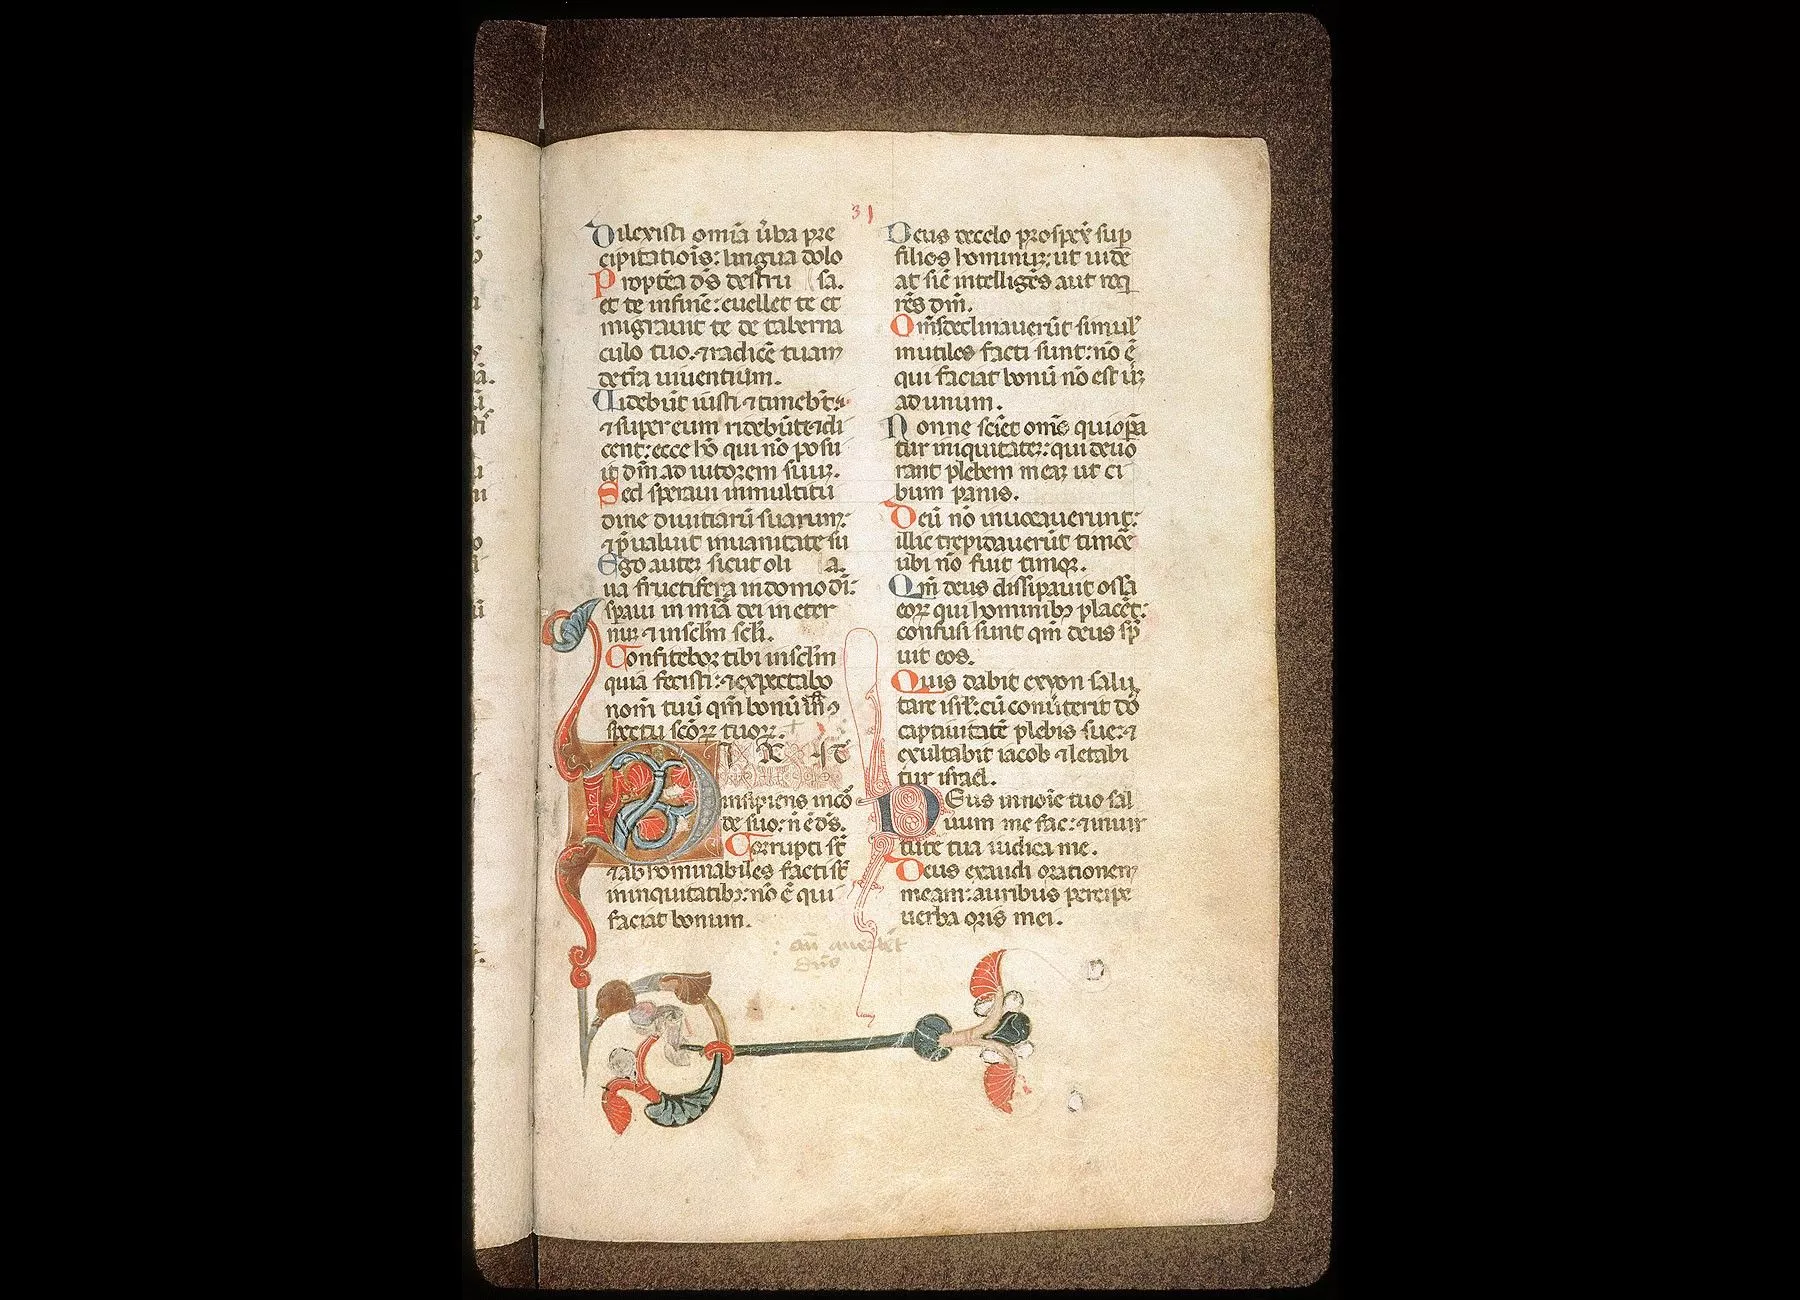 31
Dilexisti om̄ia ūba pre
cipitatiōis: lingua dolo
Proptēa dŝ destru sa.
et te infinē: euellet te et
migrauit te de taberna
culo tuo. ⁊ radicē tuam
de tr̄a uiuentium.
Uidebūt iusti ⁊ timebt̄:
⁊ super eum ridebūt ⁊ di
cent: ecce hō qui nō posu
it dm̄ adiutorem suuꝫ.
Sed sperauit inmultitu
dine diuitiarū suarum:
⁊ p̄ualuit inuanitate su
Ego auteꝫ sicut oli a.
ua fructifera indomo dī:
spaui in miā dei in eter
nuꝫ ⁊ insclm̄ scl̄i.
Confitebor tibi insclm̄
quia fecisti: ⁊ expectabo
nom̄ tuū qm̄ bonū
spectu scōꝝ tuoꝝ.
D
insipiens incō
de suo: n̄ ē dŝ.
Corrupti st̄
⁊ abhominabiles facti st̄
ininquitatibꝫ: nō ē qui
faciat bonum.
Deus decelo prospex̄ sup
filios hominuꝫ: ut uide
at si ē intelligēs aut req̄
rēs dm̄.
Om̄s declinauerūt simul
inutiles facti sunt: nō ē
qui faciat bonū nō est usꝫ
ad unum.
Nonne sciēt om̄s qui opa
tur iniquitateꝫ: qui deuo
rant plebem meaꝫ ut ci
bum panis.
Deū nō inuocauerunt:
illic trepidauerūt timoē
ubi nō fuit timor.
Qm̄ deus dissipauit ossa
eoꝝ qui hominibꝫ placēt:
confusi sunt qm̄ deus sp̄
uit eos.
Quis dabit exyon salu
tare isrl̄: cū conūterit dō
captiuitatē plebis sue: ⁊
exultabit iacob ⁊ letabi
tur israel.
DEus in noīe tuo sal
uum me fac: ⁊ inuir
tute tua iudica me.
Deus exaudi orationem
meam: auribus percipe
uerba oris mei.